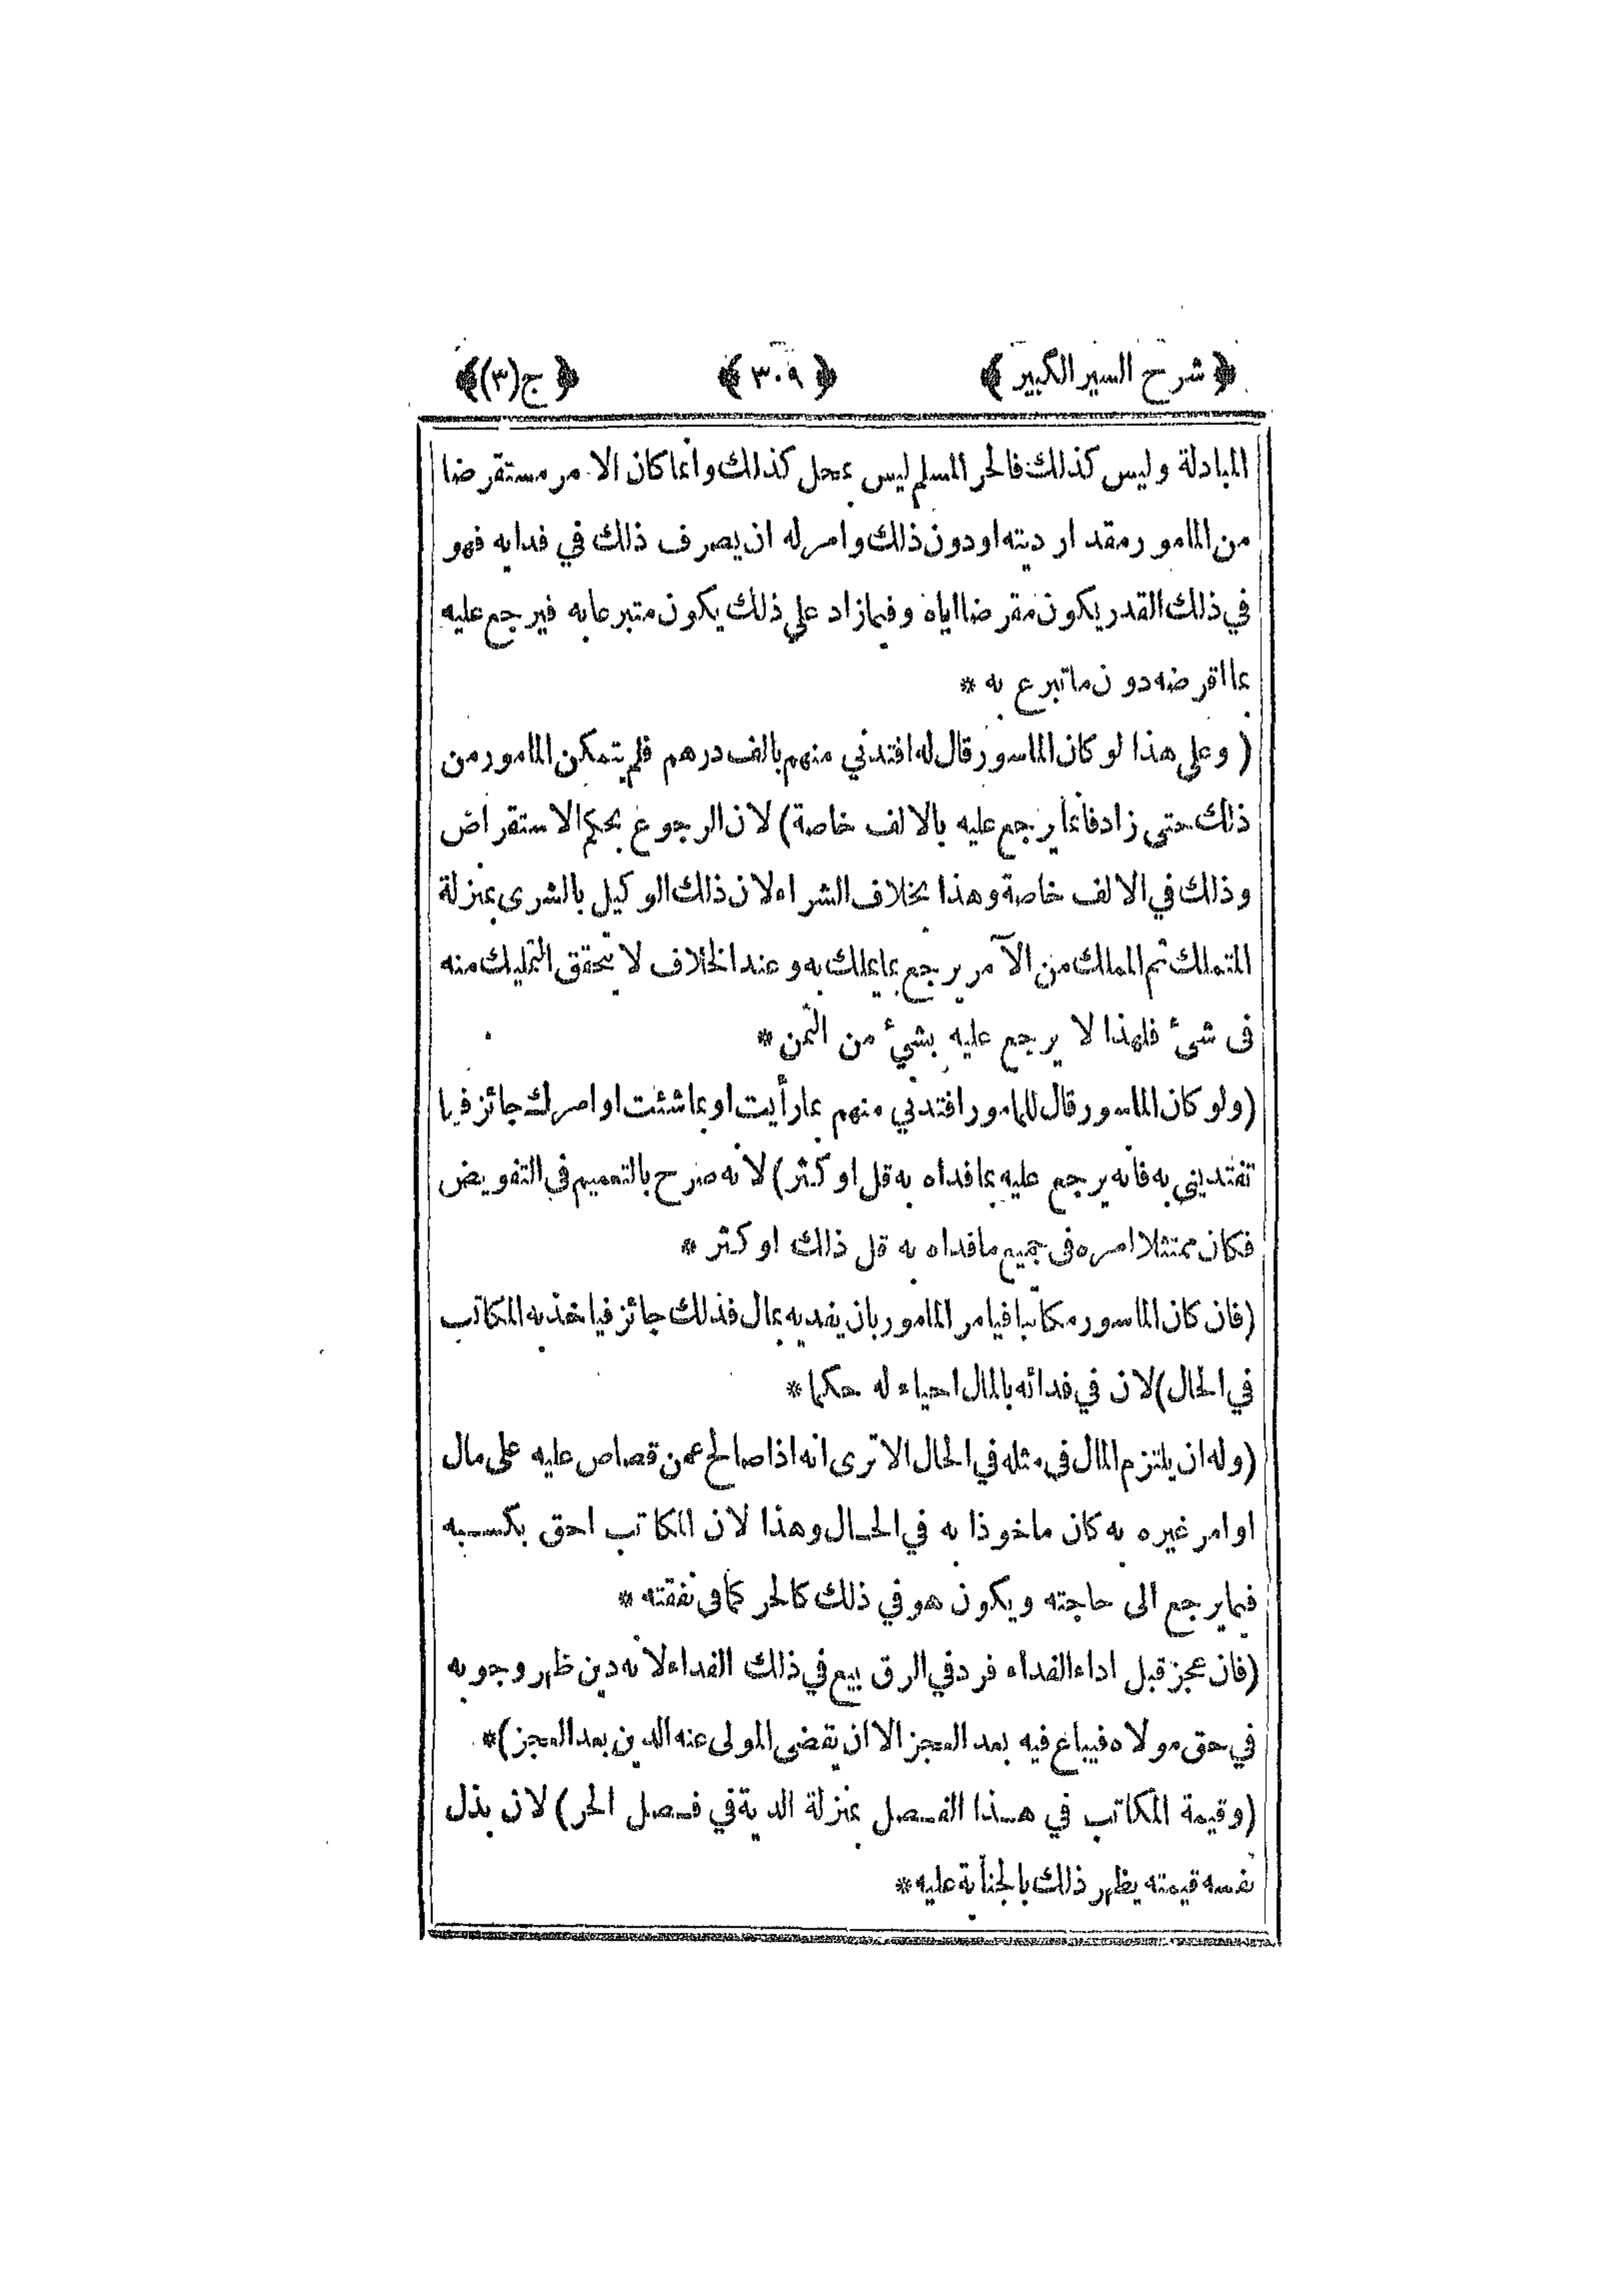 ﴿ شرح السير الكبير ﴾ ﴿ ٣٠٩ ﴾ ﴿ ج(٣) ﴾
المبادلة وليس كذلك فالحر المسلم ليس بمحل كذلك وانما كان الامر مستقرضا
من المامور مقدار ديته او دون ذلك وامر له ان يصرف ذلك في فدايه فهو
في ذلك القدر يكون مقرضا اياه وفيما زاد على ذلك يكون متبرعا به فيرجع عليه
بما اقرضه دون ما تبرع به *
( وعلى هذا لو كان الماسور قال له افتدني منهم بالف درهم فلم يتمكن المامور من
ذلك حتى زاد فانما يرجع عليه بالالف خاصة) لان الرجوع بحكم الاستقراض
وذلك في الالف خاصة وهذا بخلاف الشراء لان ذلك الوكيل بالشرى بمنزلة
المتملك ثم المملك من الآمر يرجع بما يملك به وعند الخلاف لا يتحقق التمليك منه
فى شئ فلهذا لا يرجع عليه بشئ من الثمن *
(ولو كان الماسور قال للمامور افتدني منهم بما رأيت او بما شئت او امرك جائز فيما
تفتديني به فانه يرجع عليه بما فداه به قل او كثر) لانه صرح بالتعميم فى التفويض
فكان ممتثلا امره فى جميع ما فداه به قل ذلك او كثر *
(فان كان الماسور مكاتبا فيامر المامور بان يفديه بمال فذلك جائز فياخذ به المكاتب
في الحال) لان في فدائه بالمال احياء له حكما *
(وله ان يلتزم المال فى مثله في الحال الا ترى انه اذا صالح عمن قصاص عليه على مال
او امر غيره به كان ماخوذا به في الحال وهذا لان المكاتب احق بكسبه
فيما يرجع الى حاجته ويكون هو في ذلك كالحر كما فى نفقته *
(فان عجز قبل اداء الفداء فرد في الرق بيع في ذلك الفداء لانه دين ظهر وجوبه
في حق مولاه فيباع فيه بعد العجز الا ان يقضى المولى عنه الدين بعد العجز) *
(وقيمة المكاتب في هذا الفصل بمنزلة الدية في فصل الحر) لان بذل
نفسه قيمته يظهر ذلك بالجناية عليه *